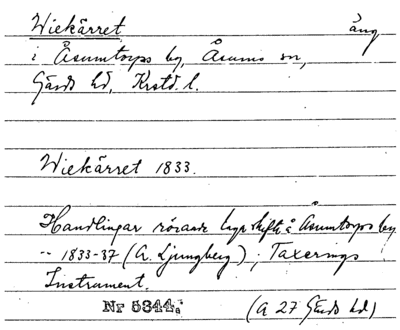 Wiekärret äng
i Åsumtorps by, Åsums sn,
Gärds hd, Krstd. l.
Wiekärret 1833.
Handlingar rörande lagaskifte å Åsumtorps by
-- 1833-37 (A. Ljungberg); Taxerings
Instrument.
Nr 5344.
(A 27 Gärds hd)